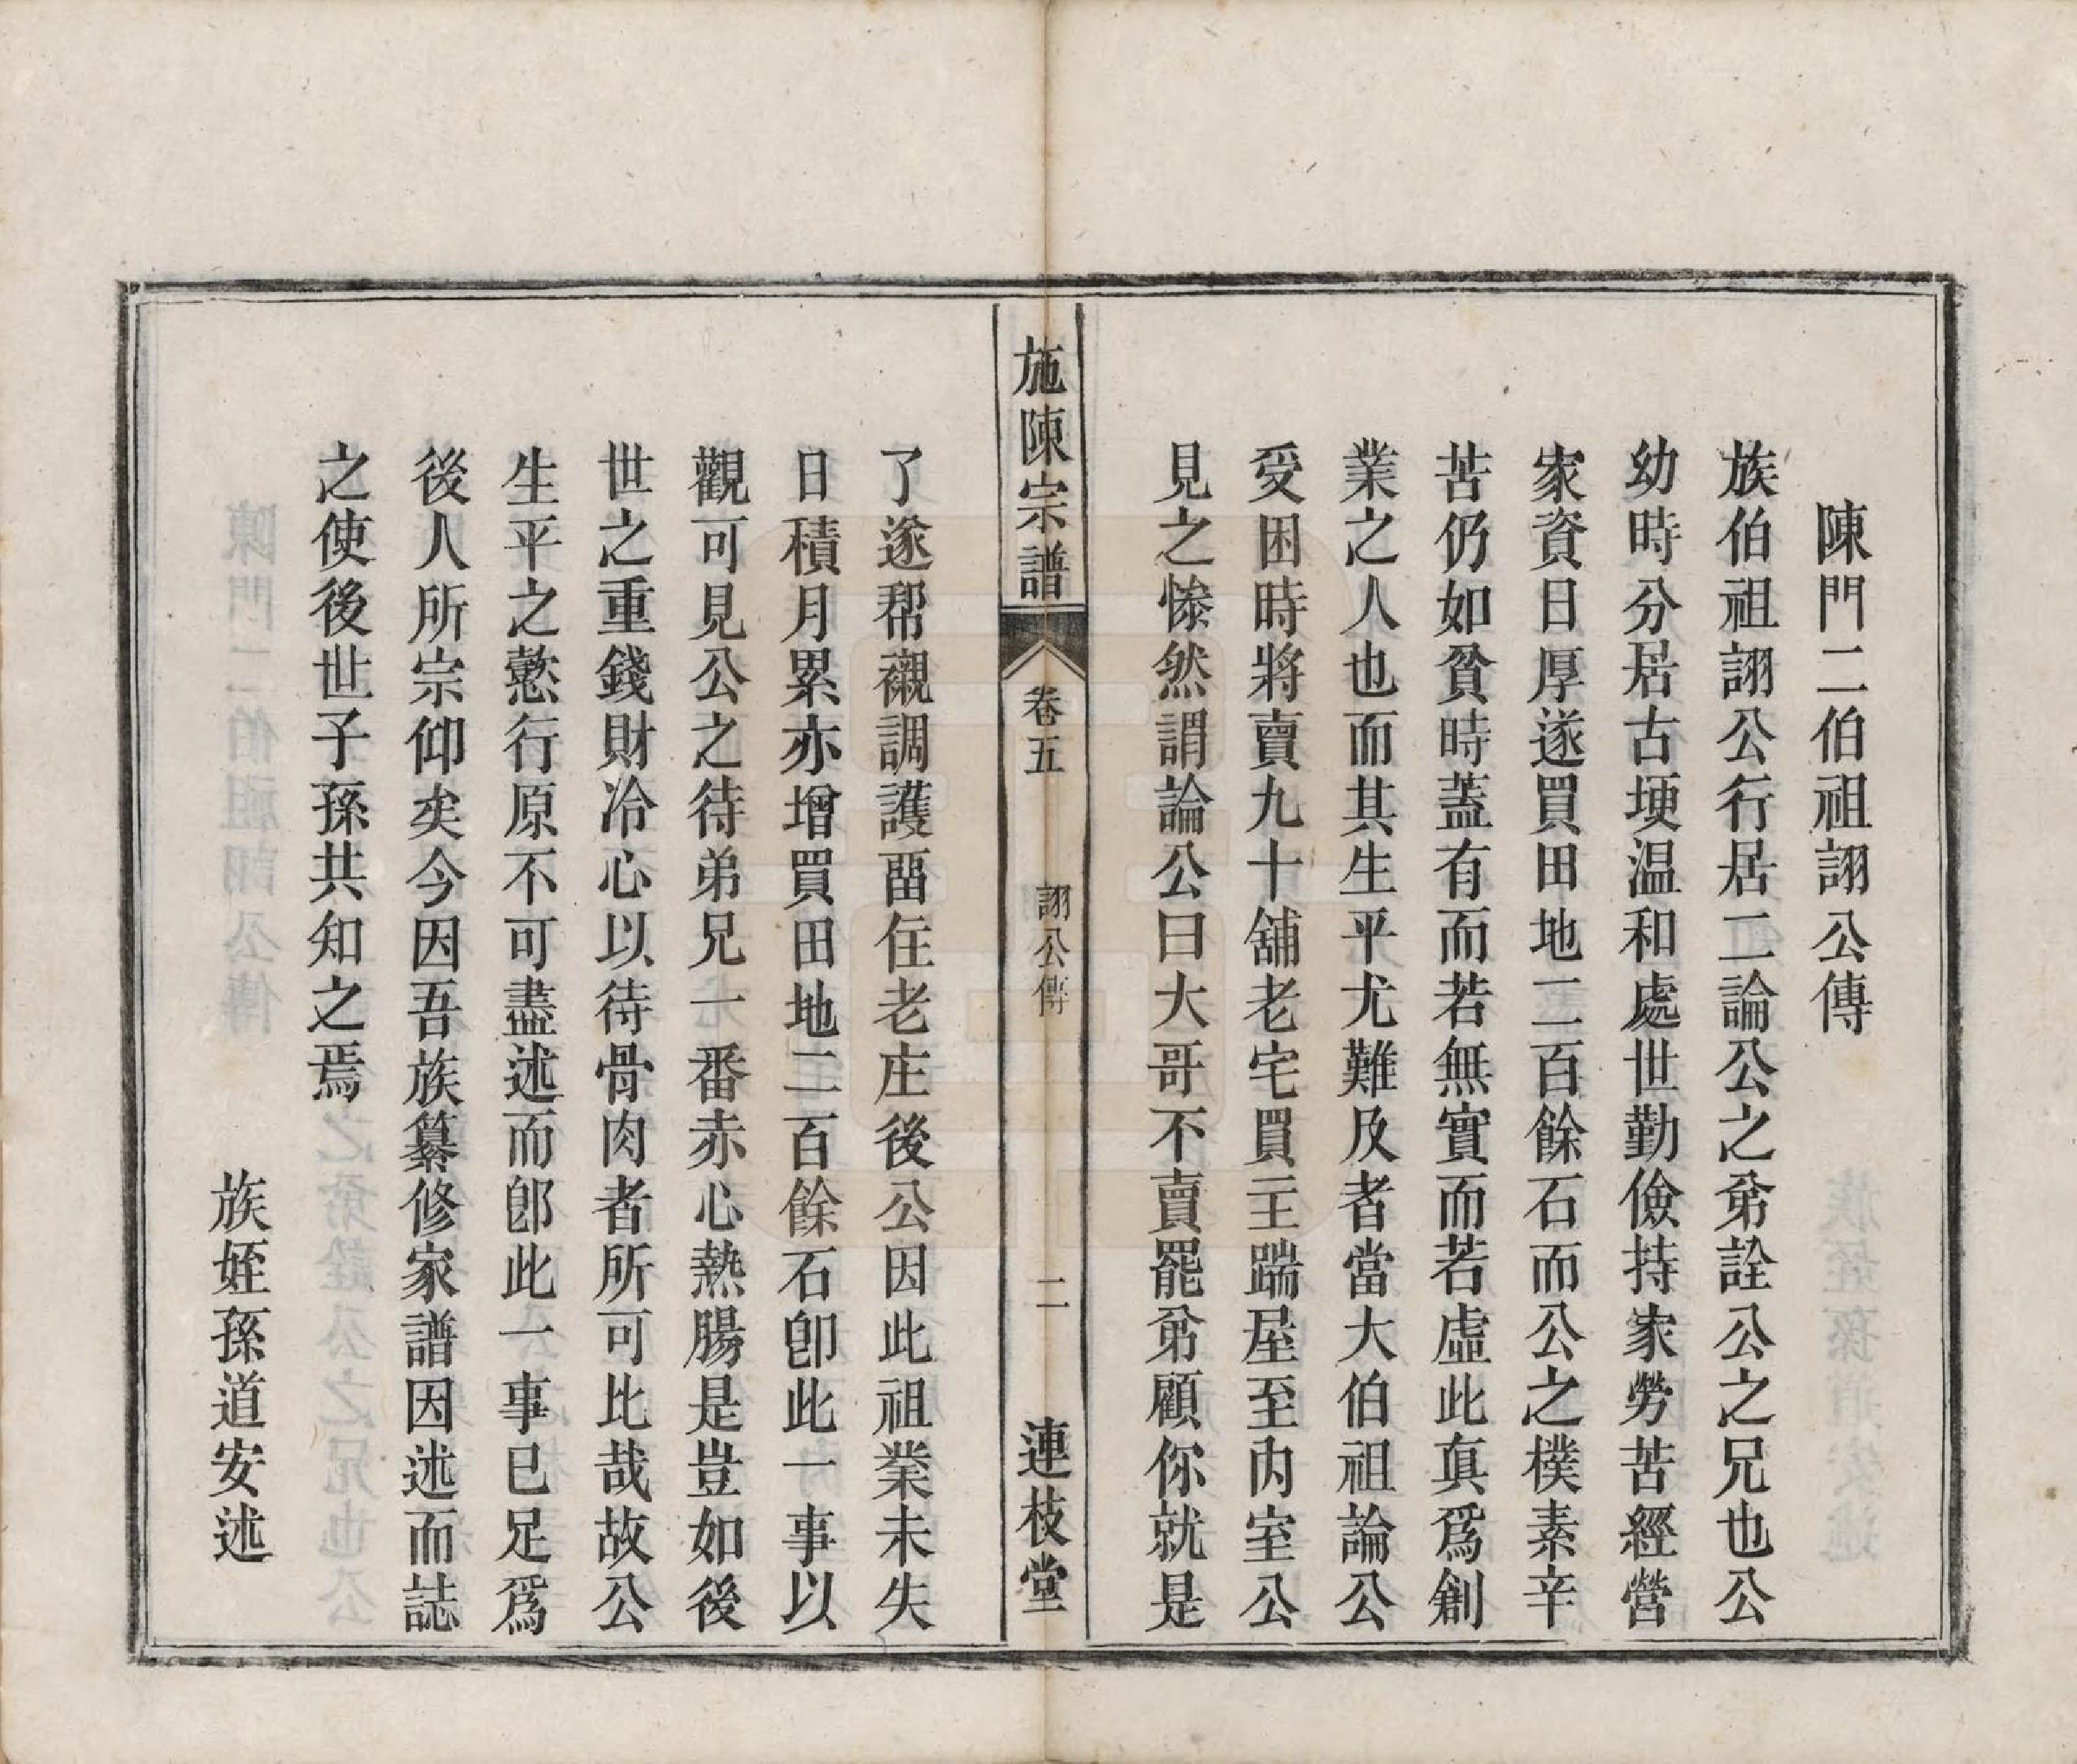 陳門二伯祖詡公傳
族伯祖詡公行居二論公之弟詮公之兄也公
幼時分居古堧温和處世勤儉持家勞苦經營
家資日厚遂買田地二百餘石而公之樸素辛
苦仍如貧時蓋有而若無實而若虛此眞爲創
業之人也而其生平尤難及者當大伯祖論公
受困時將賣九十舖老宅買主踹屋至內室公
見之慘然謂論公曰大哥不賣罷弟顧你就是
施陳宗譜
卷五
詡公傳
二
連枝堂
了遂帮襯調護畱住老庄後公因此祖業未失
日積月累亦增買田地二百餘石卽此一事以
觀可見公之待弟兄一番赤心熱腸是豈如後
世之重錢財冷心以待骨肉者所可比哉故公
生平之懿行原不可盡述而卽此一事已足爲
後人所宗仰矣今因吾族纂修家譜因述而誌
之使後世子孫共知之焉
族姪孫道安述